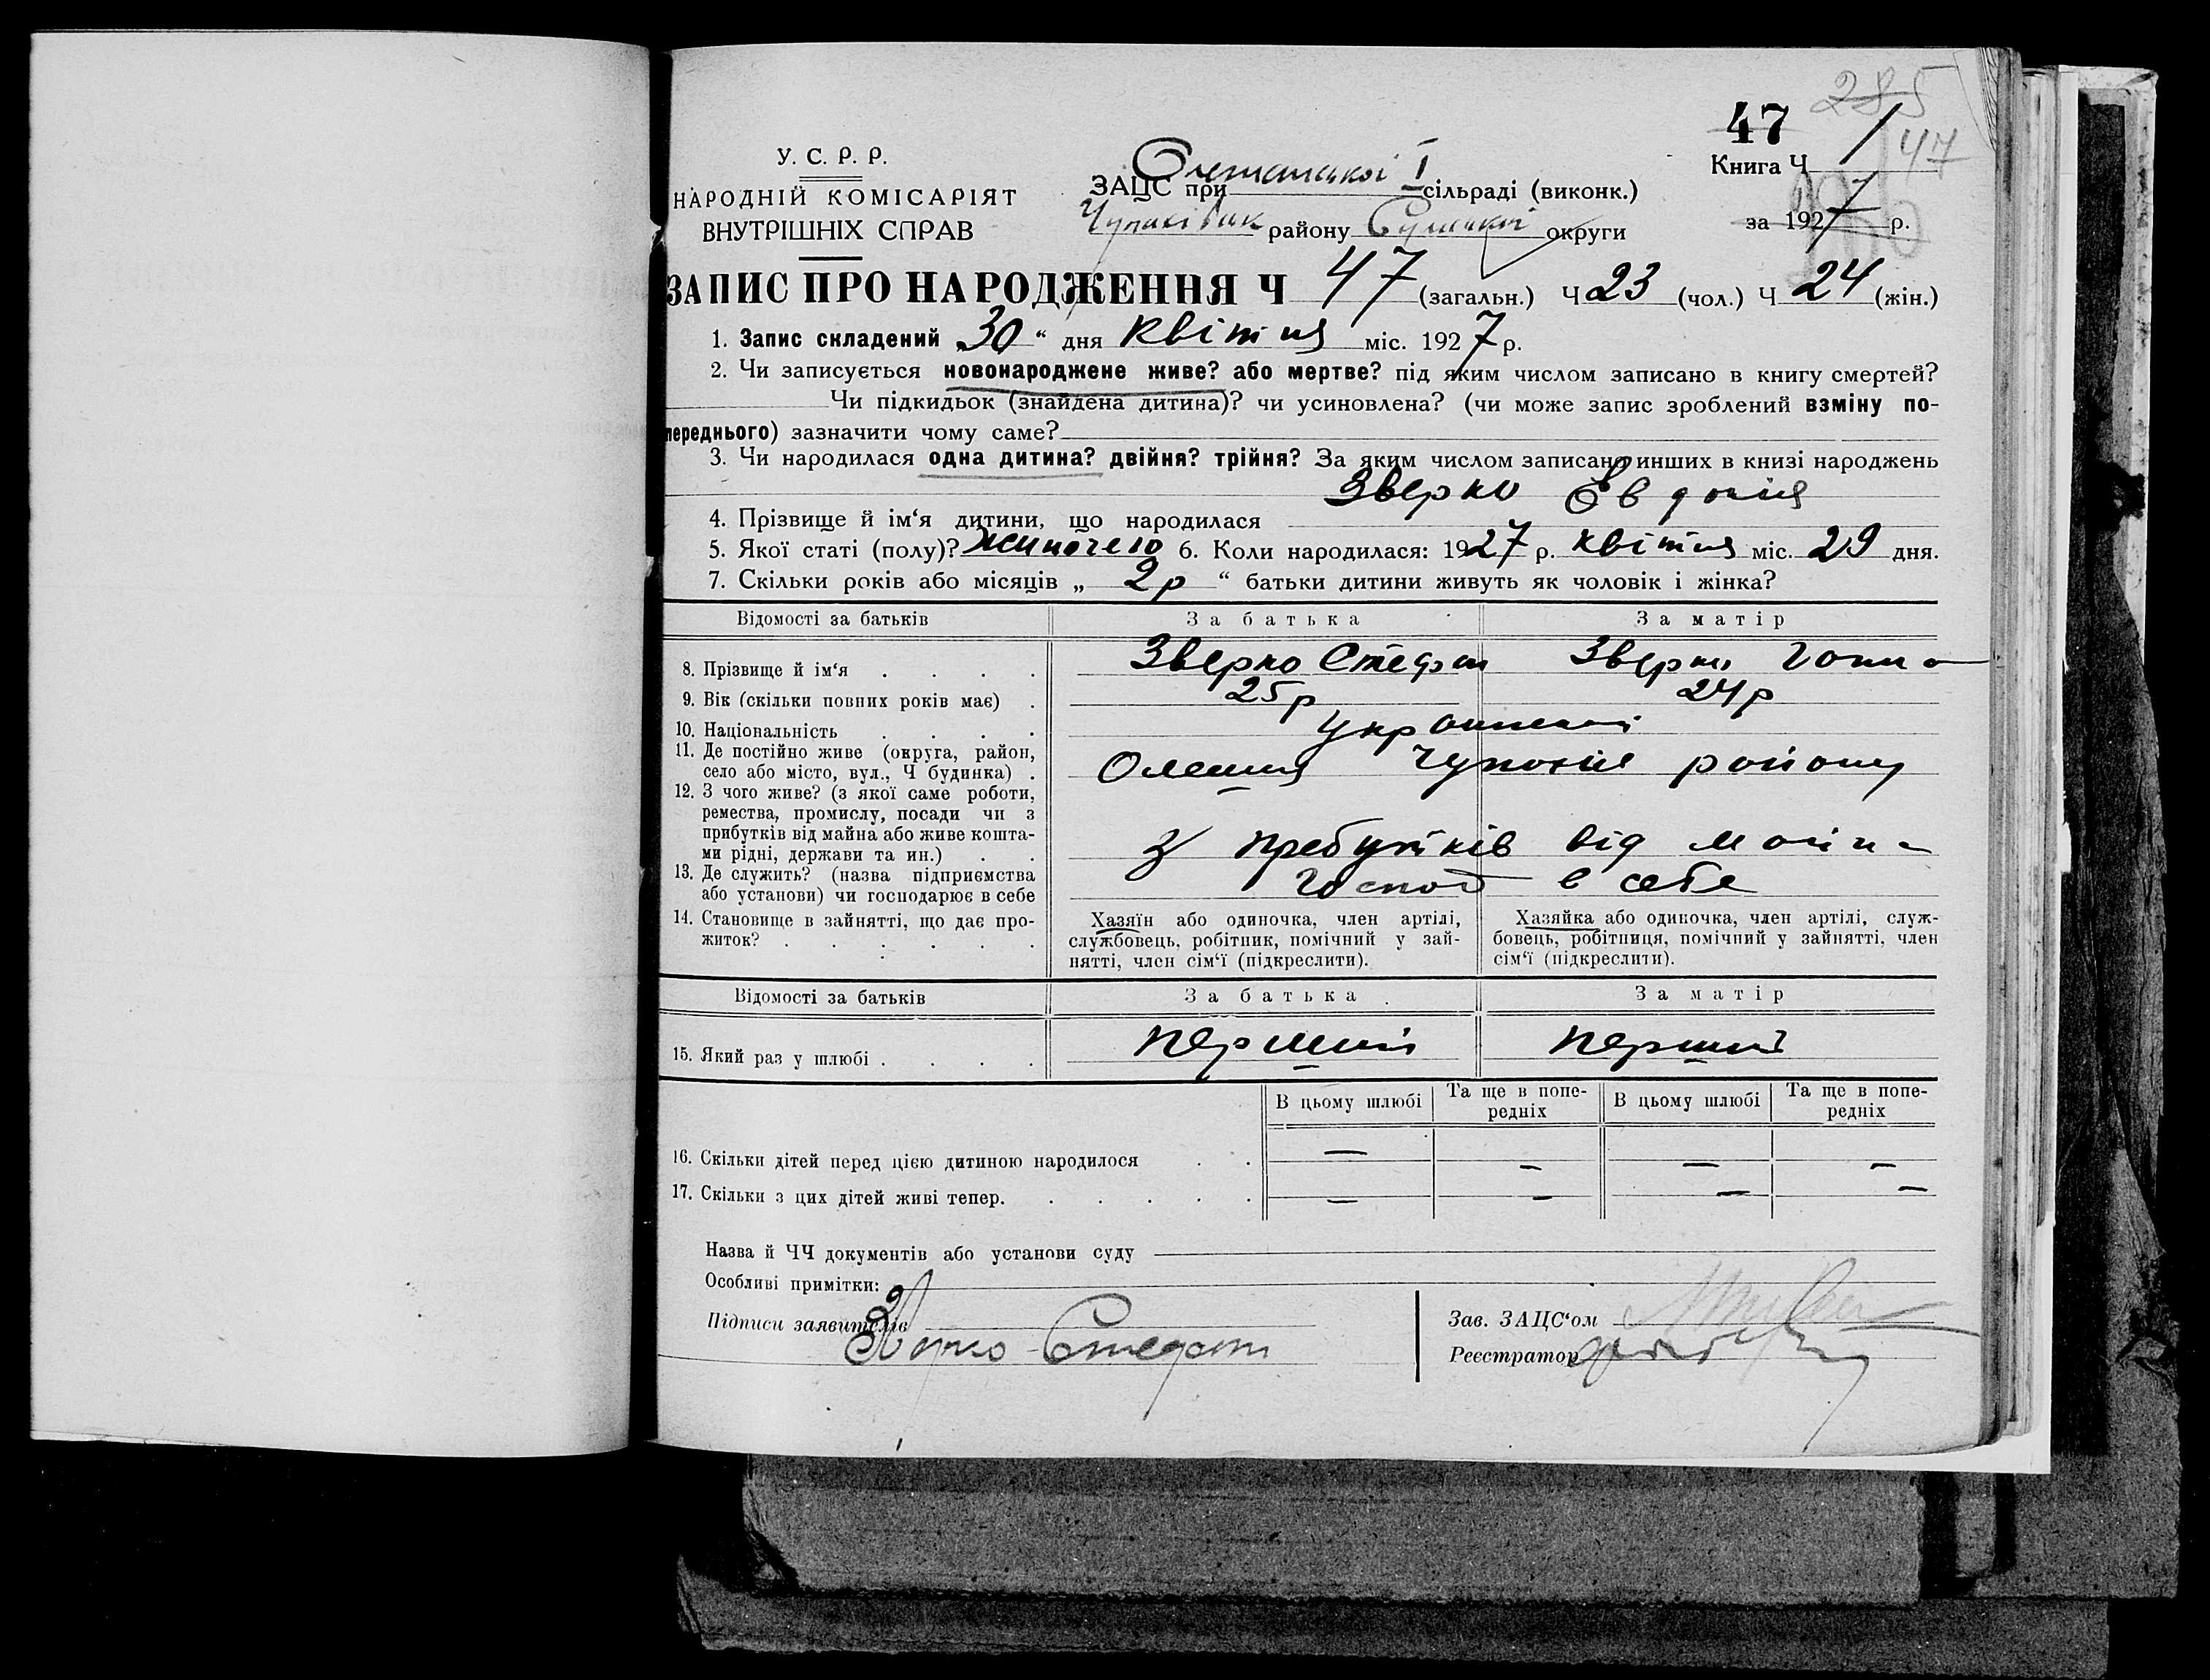 285
47
47
У. С. Р. Р.
НАРОДНІЙ КОМІСАРІЯТ
ВНУТРІШНІХ СПРАВ
Книга Ч 1
ЗАЦС при I сільраді (виконк.)
району Сумської округи
за 1927 р.
ЗАПИС ПРО НАРОДЖЕННЯ Ч 47 (загальн.) Ч 23 (чол.) Ч 24 (жін.)
1. Запис складений „30“ дня квітня міс. 1927 р.
2. Чи записується новонароджене живе? або мертве? під яким числом записано в книгу смертей?
Чи підкидьок (знайдена дитина)? чи усиновлена? (чи може запис зроблений взміну по-
переднього) зазначити чому саме?
3. Чи народилася одна дитина? двійня? трійня? За яким числом записано инших в книзі народжень
4. Прізвище й ім‘я дитини, що народилася Зверко Євдокія
5. Якої статі (полу)? жиночего 6. Коли народилася: 1927 р. квітня міс. 29 дня.
7. Скільки років або місяців „ 2 р “ батьки дитини живуть як чоловік і жінка?
Відомості за батьків За батька За матір
8. Прізвище й ім‘я . . . . Зверко Стефан Зверко Ганна
9. Вік (скільки повних років має) . 25 р 24 р
10. Національність . . . .
11. Де постійно живе (округа, район,
село або місто, вул., Ч будинка) . Олешня району
12. З чого живе? (з якої саме роботи,
ремества, промислу, посади чи з
прибутків від майна або живе кошта-
ми рідні, держави та ин.) . . З пребутків від майна
13. Де служить? (назва підприємства
або установи) чи господарює в себе Господ в себе
14. Становище в зайнятті, що дає про-
житок? . . . . . .
Хазяїн або одиночка, член артілі,
службовець, робітник, помічний у зай-
нятті, член сім‘ї (підкреслити).
Хазяйка або одиночка, член артілі, служ-
бовець, робітниця, помічний у зайнятті, член
сім‘ї (підкреслити).
Відомості за батьків За батька За матір
15. Який раз у шлюбі . . . . перший перший
В цьому шлюбі Та ще в попе-
редніх В цьому шлюбі Та ще в попе-
редніх
16. Скільки дітей перед цією дитиною народилося . . — — — —
17. Скільки з цих дітей живі тепер. . . . . . — — — —
Назва й ЧЧ документів або установи суду
Особливі примітки:
Підписи заявителів
Зверко Стефан
Зав. ЗАЦС‘ом
Реєстратор